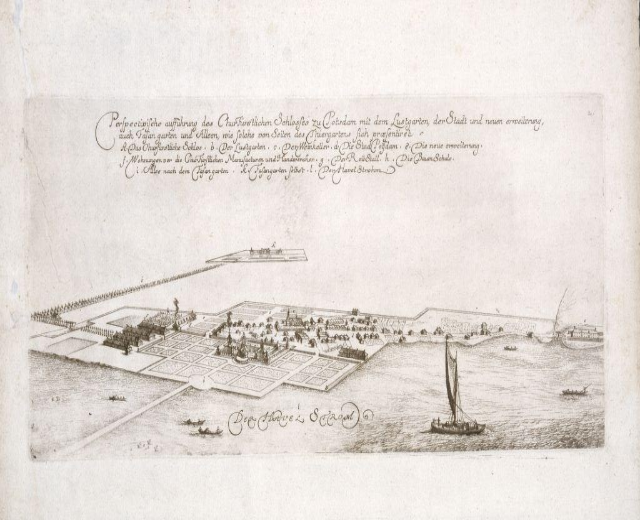 Perspectivische aufführung des Churfürstlichen Schlosses zu Potsdam mit dem Lustgarten, der Stadt und neuen erweiterung,
auch Fasangarten und Alleen, wie solche von Seiten des Thiergartens sich præsentiret.
a. Das Churfürstliche Schlos. b. Der Lustgarten. c. Der d. Die Stad Potsdam. e. Die neue erweiterung.
f. Wohnungen vor die Churfürstlichen Manufacturen und Handwercker. g. Der h. Die
i. Allee nach dem Fasangarten. k. Fasangarten selbst. l. Der Havel Strohm.
Der Havel Strohm